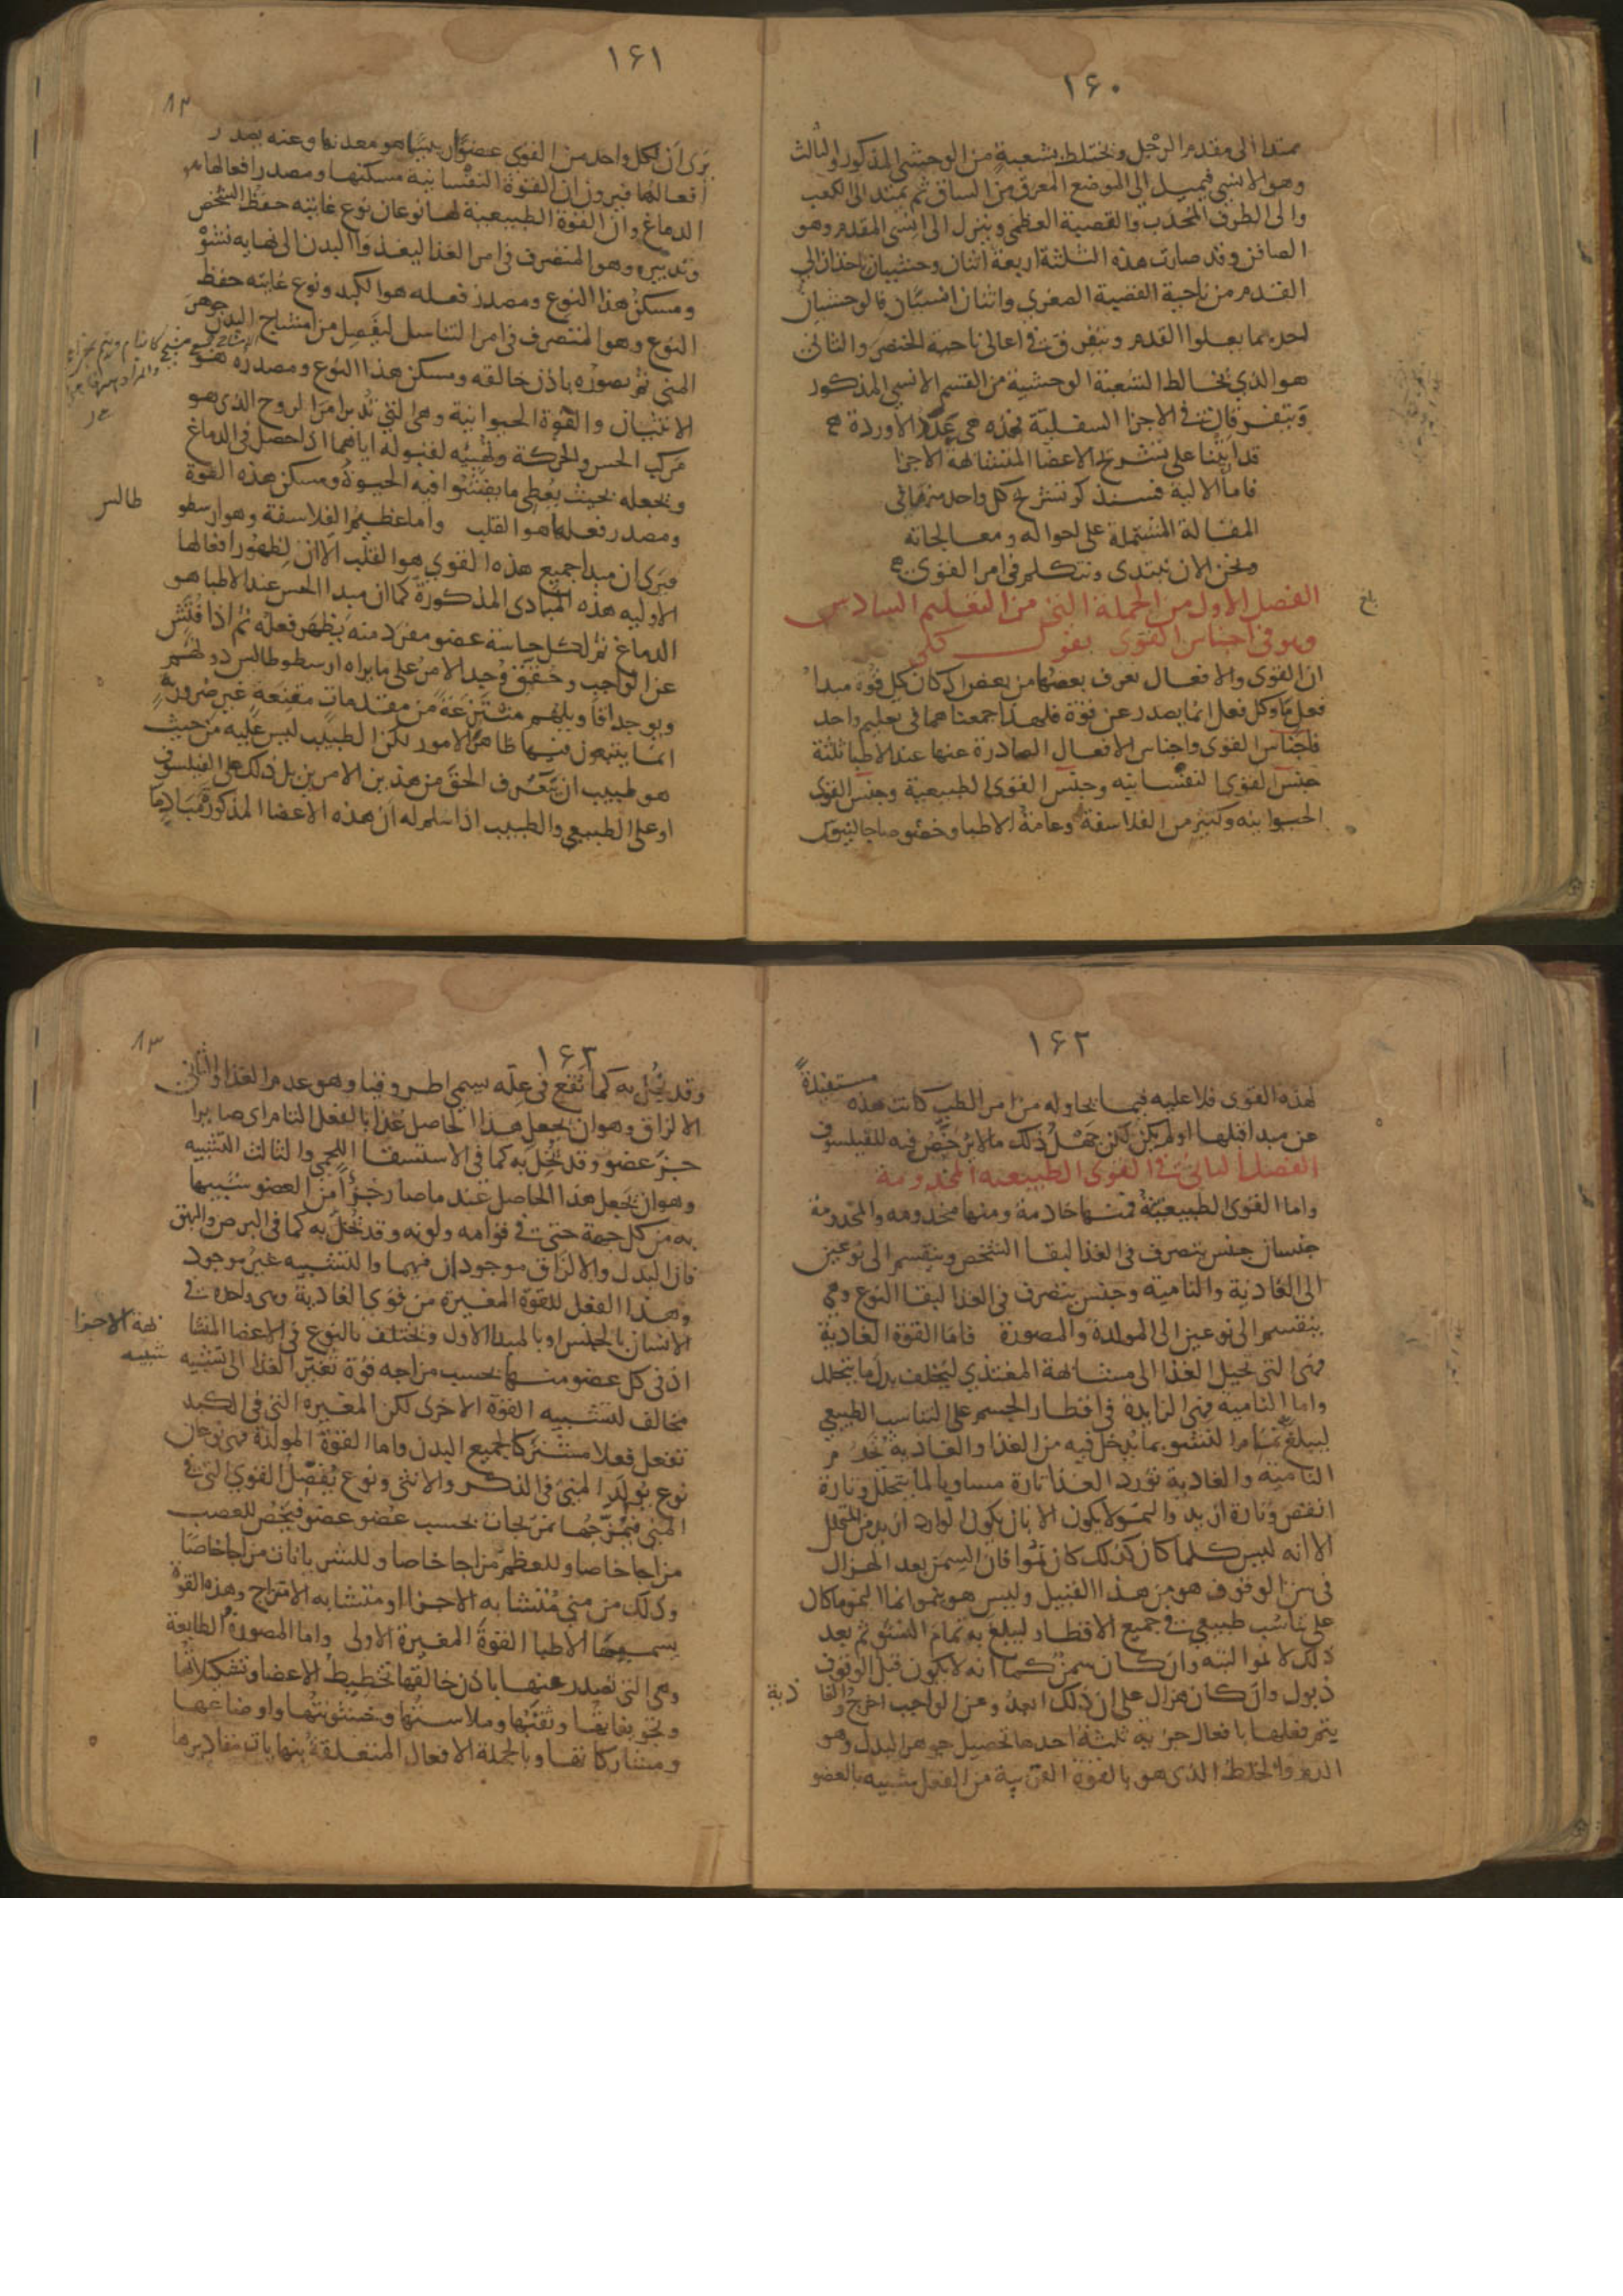 ١٦٠
ممتدا الى مقدم الرجل ويختلط بشعبة من الوحشي المذكور والثالث
وهو الانسي فيميل الى الموضع المعرق من الساق ثم يمتد الى الكعب
والى الطرف المحدب والقصبة العظمى وينزل الى انسي المقدم وهو
الصافن وقد صارت هذه الثلثة اربعة اثنان وحشيان ياخذان الى
القدم من ناحية القصبة الصغرى واثنان انسيان فالوحشيان
احدهما يعلوا القدم ويتفرق في اعالى ناحية الخنصر والثانى
هو الذي يخالط الشعبة الوحشية من القسم الانسي المذكور
ويتفرقان في الاجزا السفلية فهذه هي عدد الاوردة
قد اتينا على تشريح الاعضا المتشابهة الاجزا
فاما الالية فسنذكر تشريح كل واحد منها في
المقالة المشتملة على احواله ومعالجاته
ونحن الان نبتدى ونتكلم في امر القوى
الفصل الاول من الجملة التى من التعليم السادس
وهو في اجناس القوى بقول كلى
بلغ
ان القوى والافعال يعرف بعضها من بعض اذ كان كل قوة مبدا
فعل ما وكل فعل انما يصدر عن قوة فلهذا جمعناهما في تعليم واحد
فاجناس القوى واجناس الافعال الصادرة عنها عند الاطبا ثلثة
جنس القوى النفسانيه وجنس القوى الطبيعية وجنس القوى
الحيوانيه وكثير من الفلاسفة وعامة الاطبا وخصوصا جالينوس
١٦١
٨٢
يرى ان لكل واحد من القوى عضوا رييسيا هو معدنها وعنه يصدر
افعالها فيرون ان القوة النفسانية مسكنها ومصدر افعالها من
الدماغ وان القوة الطبيعية لها نوعان نوع غايته حفظ الشخص
وتدبيره وهو المتصرف في امر الغذا ليغذوا البدن الى نهايه نشوه
ومسكن هذا النوع ومصدر فعله هو الكبد ونوع غايته حفظ
النوع وهو المتصرف في امر التناسل ليفصل من امشاج البدن جوهر
المنى ثم يصوره باذن خالقه ومسكن هذا النوع ومصدره هو
الانثيان والقوة الحيوانية وهى التي تدبر امر الروح الذى هو
مركب الحس والحركة وتهييه لقبوله اياهما اذا حصل في الدماغ
ويجعله بحيث يعطى ما يفشوا فيه الحيوة ومسكن هذه القوة
ومصدر فعلها هو القلب واما عظيم الفلاسفة وهو ارسطو
طالس
فيرى ان مبدا جميع هذه القوى هو القلب الا ان لظهور افعالها
الاوليه هذه المبادى المذكورة كما ان مبدا الحس عند الاطبا هو
الدماغ ثم لكل حاسة عضو مفرد منه يظهر فعله ثم اذا فتش
عن الواجب وحقق وجد الامر على ما يراه ارسطوطالس دونهم
ويوجد اقاويلهم منتزعة من مقدمات مقنعة غير ضرورية
انما يتبعون فيها ظاهر الامور لكن الطبيب ليس عليه من حيث
هو طبيب ان يتعرف الحق من هذين الامرين بل ذلك على الفيلسوف
او على الطبيعي والطبيب اذا سلم له ان هذه الاعضا المذكورة مبادٍ ما
١٦٢
لهذه القوى فلا عليه فيما يحاوله من امر الطب كانت هذه مستفيدة
عن مبدا قبلها او لم يكن لكن جهل ذلك مما لا يرخص فيه للفيلسوف
الفصل الثانى في القوى الطبيعيه المخدومة
واما القوى الطبيعية فمنها خادمة ومنها مخدومه والمخدومة
جنسان جنس يتصرف في الغذا لبقا الشخص وينقسم الى نوعين
الى الغاذية والنامية وجنس يتصرف في الغذا لبقا النوع وهى
ينقسم الى نوعين الى المولدة والمصورة فاما القوة الغاذية
فهى التى تحيل الغذا الى مشابهة المغتذي ليخلف بدل ما يتحلل
واما النامية فهى الزايدة في اقطار الجسم على التناسب الطبيعي
ليبلغ تمام النشو بما يدخل فيه من الغذا والغاذية تخدم
النامية والغاذية تورد الغذا تارة مساويا لما يتحلل وتارة
انقص وتارة ازيد والنمو لا يكون الا بان يكون الوارد ازيد من المتحلل
الا انه ليس كلما كان كذلك كان نموا فان السمن بعد الهزال
في سن الوقوف هو من هذا القبيل وليس هو بنمو انما النمو ما كان
على تناسب طبيعي في جميع الاقطار ليبلغ به تمام النشو ثم بعد
ذلك لا نموا البته وان كان سمن كما انه لا يكون قبل الوقوف
ذبول وان كان هزال على ان ذلك ابعد وعن الواجب اخرج والغا
ذية
يتم فعلها بافعال جزيية ثلثة احدها تحصيل جوهر البدل وهو
الدم والخلط الذى هو بالقوة القريبة من الفعل شبيه بالعضو
١٦٣
٨٣
وقد يخل به كما تقع في علة يسمى اطروفيا وهو عدم الغذا والثانى
الالزاق وهو ان يجعل هذا الحاصل غذا بالفعل التام اى صايرا
جز عضو وقد يخل به كما في الاستسقا اللحمي والثالث التشبيه
وهو ان يجعل هذا الحاصل عند ما صار جزؤا من العضو شبيها
به من كل جهة حتى في قوامه ولونه وقد يخل به كما في البرص والبهق
فان البدل والالزاق موجودان فيهما والتشبيه غير موجود
وهذا الفعل للقوة المغيرة من قوى الغاذية وهى واحدة في
الانسان بالجنس او بالمبدا الاول ويختلف بالنوع في الاعضا المتشا
بهة الاجزا
اذ في كل عضو منها بحسب مزاجه قوة تغير الغذا الى تشبيه
شبيه
مخالف لتشبيه القوة الاخرى لكن المغيره التى في الكبد
تفعل فعلا مشتركا لجميع البدن واما القوة المولدة فهى نوعان
نوع يولد المنى في الذكر والانثى ونوع يفصل القوى التى في
المنى فيمزجها تمزيجات بحسب عضو عضو فيخص للعصب
مزاجا خاصا وللعظم مزاجا خاصا وللشريانات مزاجا خاصا
وذلك من منى متشابه الاجزا او متشابه الامتزاج وهذه القوة
يسميها الاطبا القوة المغيرة الاولى واما المصورة الطابعة
وهى التى تصدر عنها باذن خالقها تخطيط الاعضا وتشكيلاتها
وتجويفاتها وثقبها وملاستها وخشونتها واوضاعها
ومشاركاتها وبالجملة الافعال المتعلقة بنهايات مقاديرها